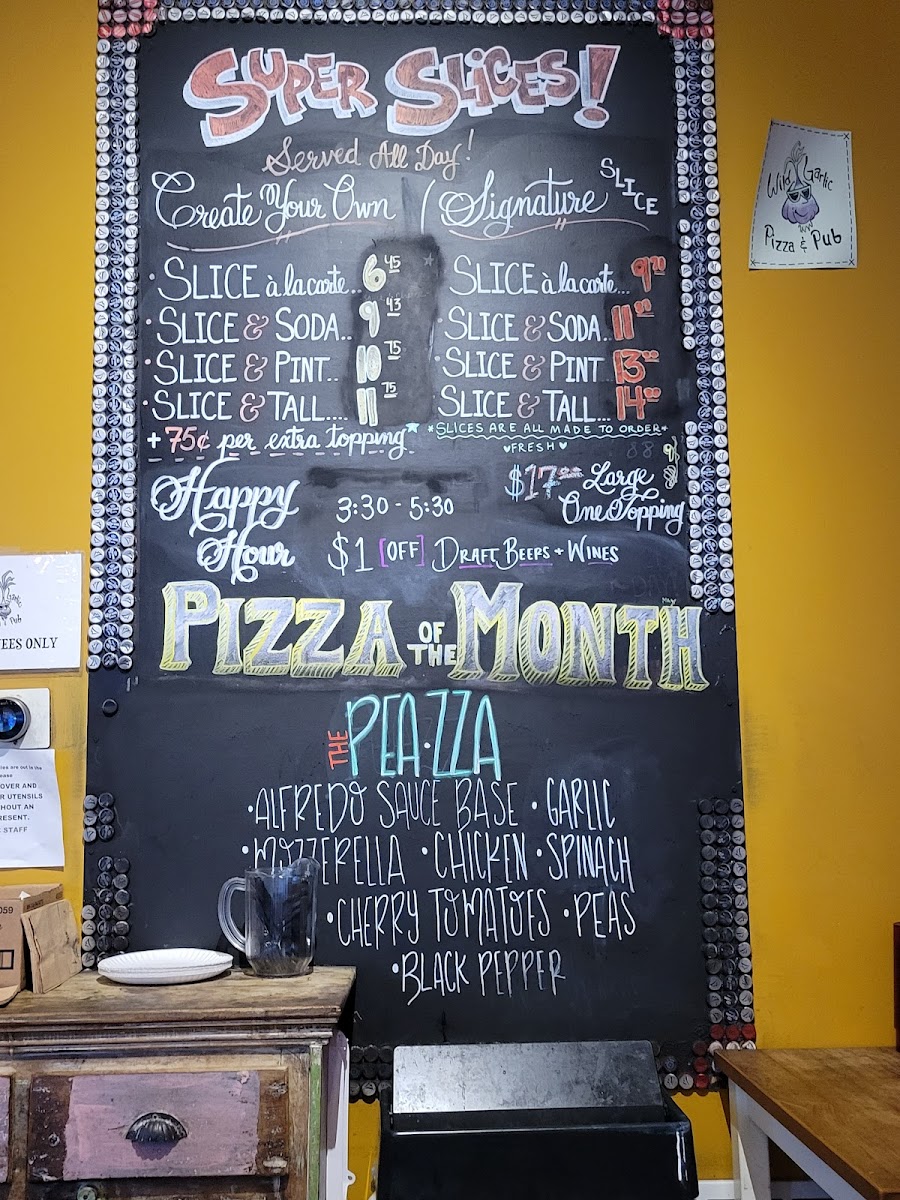 SUPER SLICES!
Served All Day!
Create Your Own / Signature SLICE
• SLICE à la carte.. 6 45
• SLICE & SODA.. 9 43
• SLICE & PINT.. 10 75
• SLICE & TALL.... 11 75
+ 75¢ per extra topping*
• SLICE à la carte... 9
• SLICE & SODA.. 11
• SLICE & PINT 13
• SLICE & TALL... 14
*SLICES ARE ALL MADE TO ORDER*
♥FRESH♥
Happy Hour
3:30 - 5:30
$1 [OFF] DRAFT BEERS + WINES
$17 Large
One Topping
PIZZA OF THE MONTH
MAY
THE PEA·ZZA
•ALFREDO SAUCE BASE •GARLIC
•MOZZERELLA •CHICKEN •SPINACH
•CHERRY TOMATOES •PEAS
•BLACK PEPPER
Wild Garlic
Pizza & Pub
Pub
EES ONLY
OVER AND
R UTENSILS
HOUT AN
RESENT.
STAFF
059